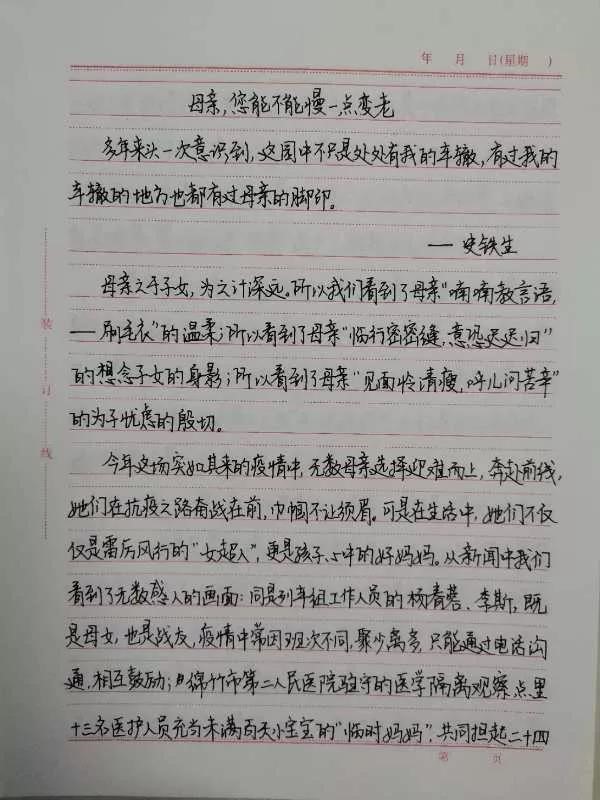 年 月 日(星期 )
母亲,您能不能慢一点变老
多年来头一次意识到,这园中不只是处处有我的车辙,有过我的
车辙的地方也都有过母亲的脚印。
——史铁生
母亲之于子女,为之计深远。所以我们看到了母亲"喃喃教言语,
一一刷毛衣"的温柔;所以看到了母亲"临行密密缝,意恐迟迟归"
的想念子女的身影;所以看到了母亲"见面怜清瘦,呼儿问苦辛"
的为子忧虑的殷切。
今年这场突如其来的疫情中,无数母亲选择迎难而上,奔赴前线,
她们在抗疫之路奋战在前,巾帼不让须眉。可是在生活中,她们不仅
仅是雷厉风行的"女超人",更是孩子心中的好妈妈。从新闻中我们
看到了无数感人的画面:同是列车组工作人员的杨青蓉、李斯,既
是母女,也是战友,疫情中常因班次不同,聚少离多,只能通过电话沟
通,相互鼓励;绵竹市第二人民医院驻守的医学隔离观察点里
十三名医护人员充当未满百天小宝宝的"临时妈妈",共同担起二十四
装
订
线
第 页